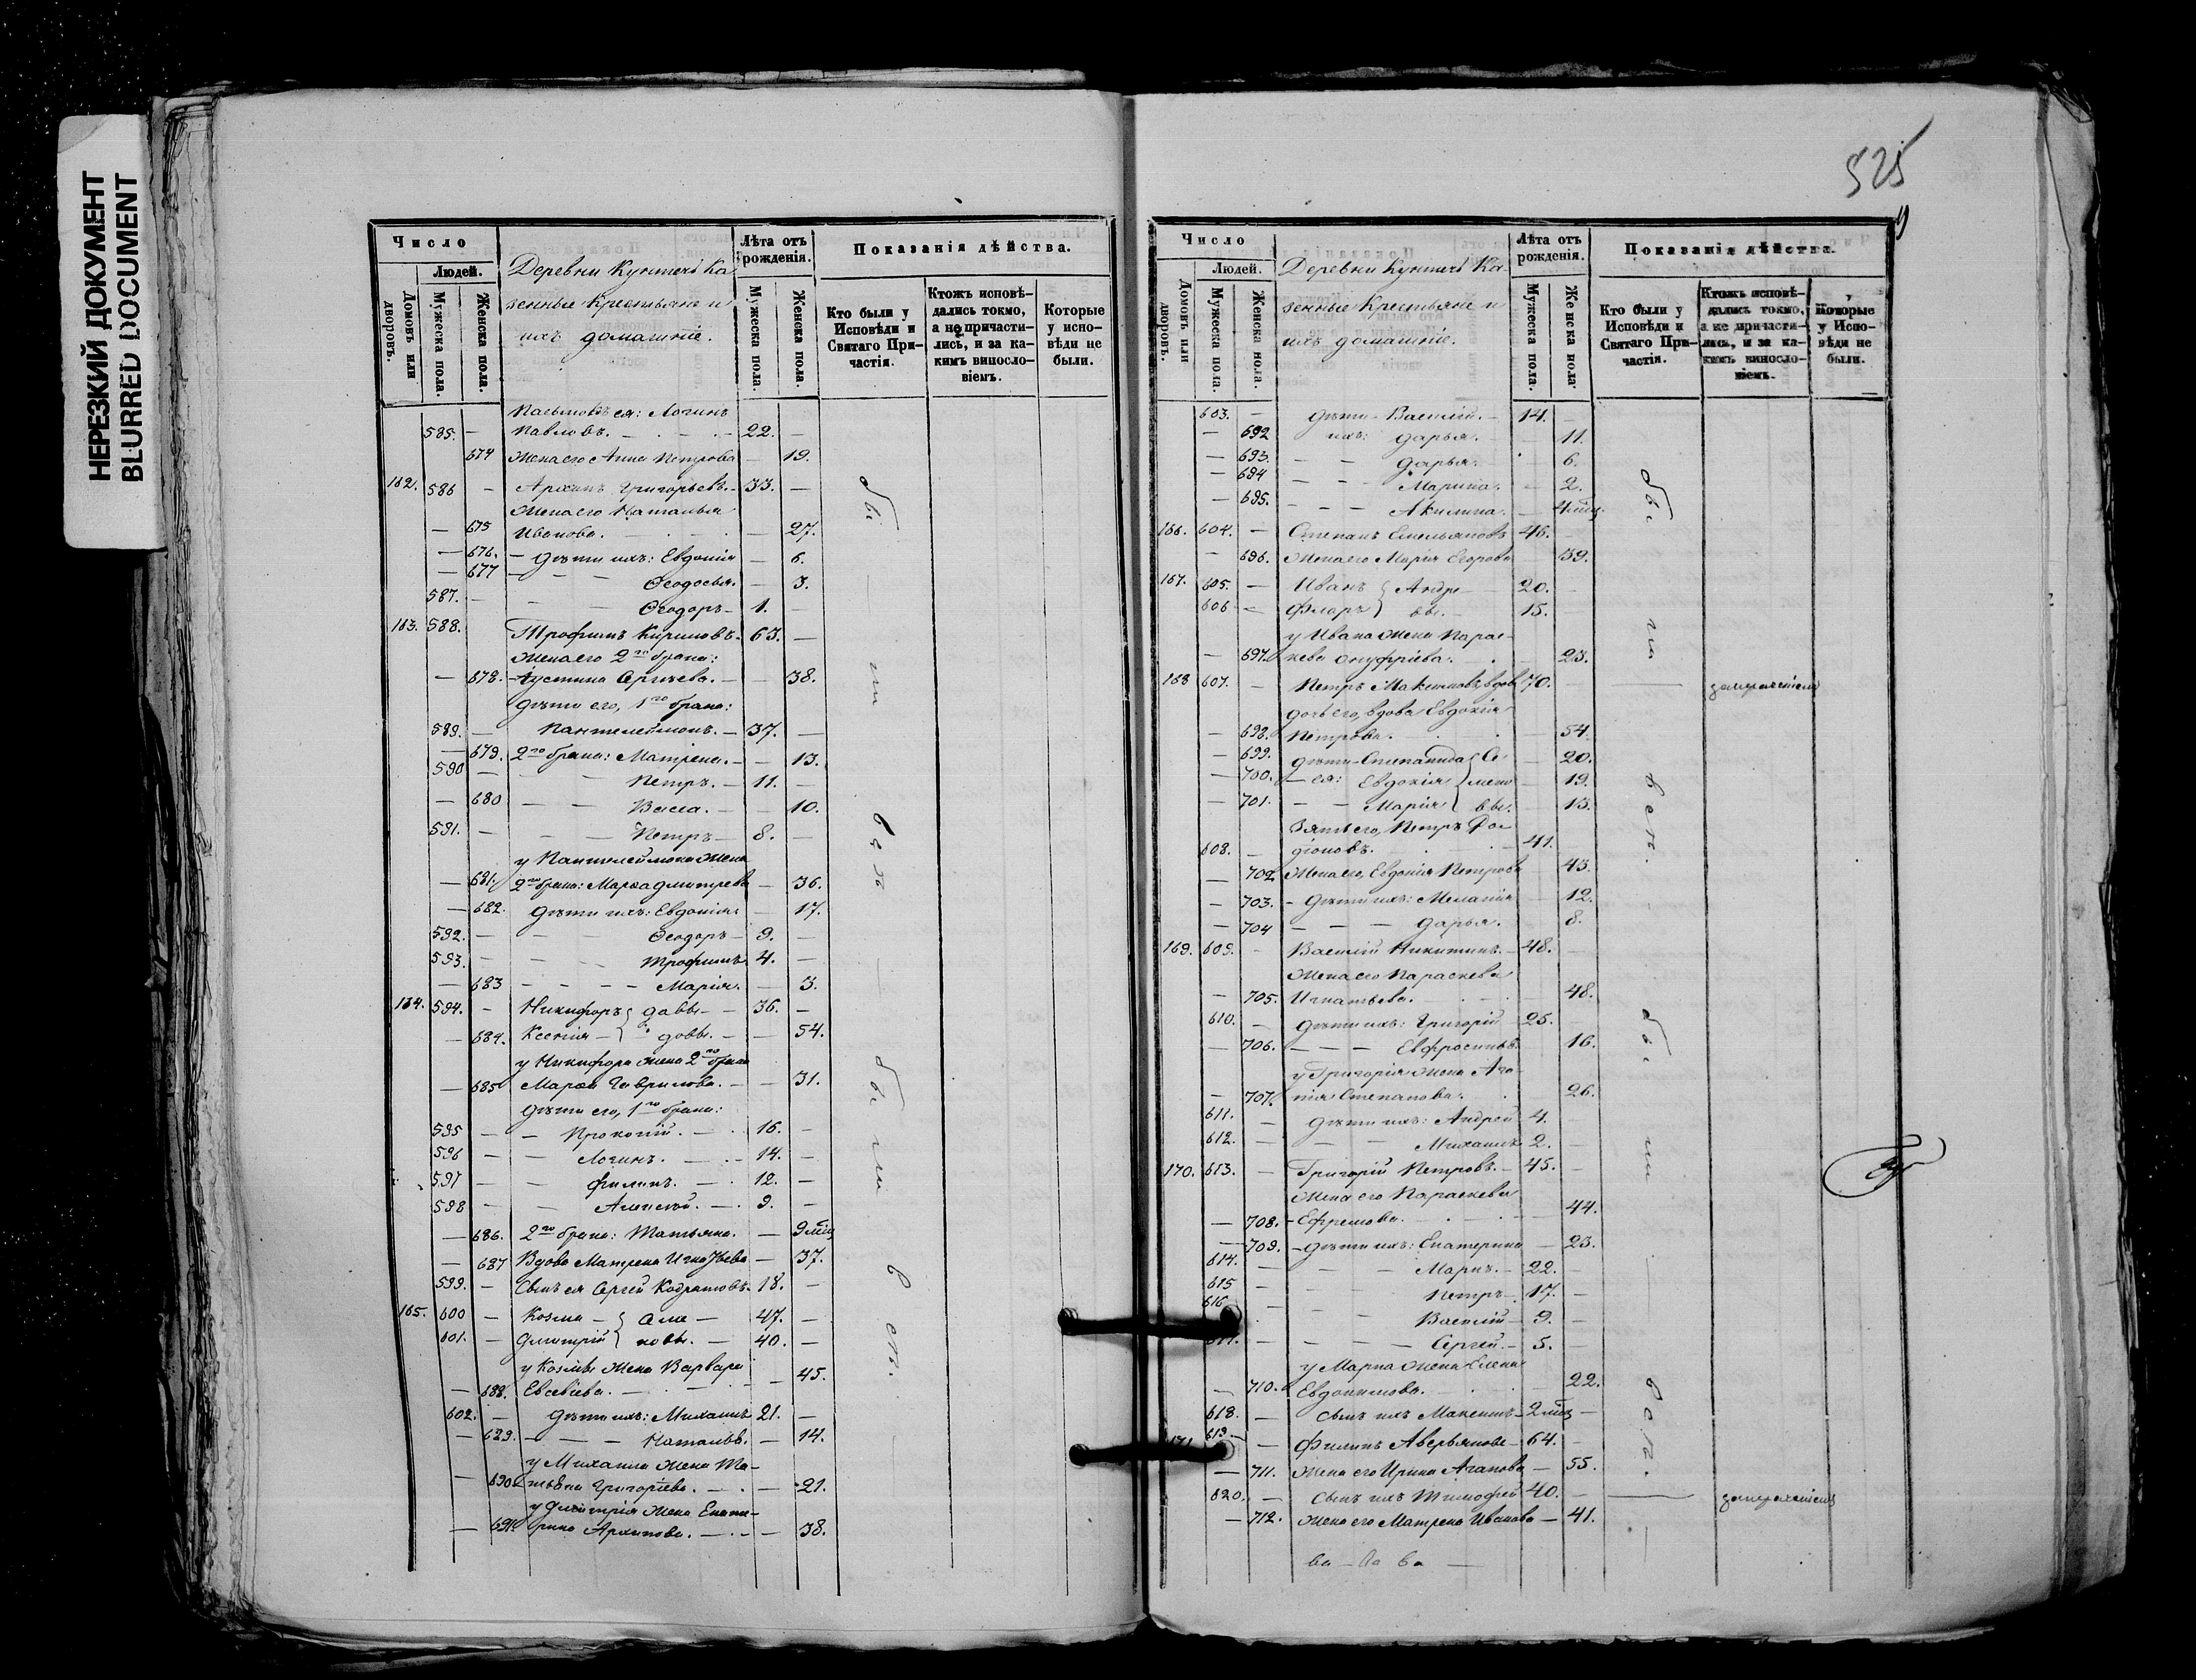 НЕРЕЗКИЙ ДОКУМЕНТ
BLURRED DOCUMENT
Число
Людей.
Домовъ или дворовъ.
Мужеска пола.
Женска пола.
Деревни Кунтечi Ка
зенные Крестьяне и
ихъ домашнiе.
Лѣта отъ рожденiя.
Мужеска пола.
Женска пола.
Показанiя дѣйства.
Кто были у Исповѣди и Святаго Причастiя.
Ктожъ исповѣдались токмо, а не причастились, и за какимъ винословiемъ.
Которые у исповѣди не были.
ея: Логинъ
585. — Павловъ. — 22. —
674 Жена его Анна Петрова — 19.
162. 586 — Архипъ Григорьевъ. — 33. —
Жена его Наталья
— 675 Иванова. — 27.
— 676. — Дѣти ихъ: Евдокiя — 6.
— 677 — — Ѳеодосья. — 3.
587. — — Ѳеодоръ — 1. —
163. 588. Трофимъ Кириловъ. 63. —
Жена его 2го брака:
— 678. Iустина Сергѣева. — 38.
Дѣти его, 1го брака:
589. — Пантелеймонъ. — 37. —
— 679. 2го брака: Матрена. — 13.
590 — — Петръ. — 11. —
— 680 — — Васса. — 10.
591. — — Петръ — 8. —
у Пантелеймона Жена
— 681. 2го брака: Марѳа Дмитрева — 36.
— 682. Дѣти ихъ: Евдокiя — 17.
592. — — Ѳеодоръ — 9. —
593. — — Трофимъ 4. —
— 683 — — Марiя. — 3.
164. 594. — Никифоръ 36. —
— 684. Ксенiя — 54.
у Никифора жена 2го брака
— 685 Марѳа Гаврилова. — 31.
Дѣти его, 1го брака:
595 — — Прокопiй. — 16. —
596 — — Логинъ. — 14. —
597 — — Филипъ. — 12. —
598 — — Алексѣй. — 9. —
— 686. 2го брака: Татьяна. — 9 мѣц
— 687 Вдова Матрена Игнатьева — 37.
599. — Сынъ ея Сергей Кодратовъ. 18. —
165. 600 — Козма — 47. —
601. — Дмитрiй — 40. —
у Козмы Жена Варвара
— 688. Евсевiева. — 45.
602. — Дѣти ихъ: Михаилъ 21. —
— 689. — — Наталья. — 14.
у Михаила Жена Та-
— 690. тьяна Григорiева. — 21.
у Дмитрiя Жена Екате-
— 691. рина Архипова. — 38.
бы — ли
у
бы ли
у исп.
525
9
Число
Людей.
Домовъ или дворовъ.
Мужеска пола.
Женска пола.
Деревни Кунтечi Ка-
зенные Крестьяне и
ихъ домашнiе.
Лѣта отъ рожденiя.
Мужеска пола.
Женска пола.
Показанiя дѣйства.
Кто были у Исповѣди и Святаго Причастiя.
Ктожъ исповѣдались токмо, а не причастились, и за какимъ винословiемъ.
Которые у Исповѣди не были.
603. — Дѣти Василiй. — 14. —
— 692 ихъ: Дарья. — 11.
— 693. — — Дарья. — 6.
— 694 — — Марина. — 2.
— 695. — — Акилина. — 4 мѣц.
166. 604. — Степанъ Емельяновъ 46. —
— 696. Жена его Марiя Егорова 39.
167. 605. — Иванъ { Андре 20. —
606 — Флоръ } вы. — 15. —
у Ивана жена Парас-
— 697. кева Онуфрiева. — 23.
168 607. — Петръ Максимовъ, вдов 70. —
дочь его, вдова Евдокiя
— 698. Петрова. — 54.
— 699. дѣти Степанида { Се- — 20.
— 700. — ея: Евдокiя } мено — 19.
— 701. — — Марiя } вы. — 13.
Зять его, Петръ Ро-
608. — дiоновъ. — 41.
— 702 Жена его, Евдокiя Петрова 43.
— 703. — Дѣти ихъ: Меланiя 12.
— 704 — — Дарья. 8.
169. 609. — Василiй Никитинъ. — 48. —
Жена его Параскева
— 705. Игнатьева. — 48.
610. — Дѣти ихъ: Григорiй — 25. —
— 706. — — Евфросинья. 16.
у Григорiя Жена Ага-
— 707. пiя Степанова. 26.
611. — Дѣти ихъ: Андрей 4. —
612. — — Михаилъ 2. —
170. 613. — Григорiй Петровъ. — 45. —
Жена его Параскева
— 708. — Ефремова. — 44.
— 709. — Дѣти ихъ: Екатерина — 23.
614. — — Маркъ. — 22. —
615 — — Петръ. 17. —
616 — — Василiй — 9. —
617. — — Сергей. — 5. —
у Марка жена Елена
— 710. Евдокимова. — 22.
618. — Сынъ ихъ Максимъ — 2 мѣц —
171 619. — Филипъ Аверьяновъ — 64. —
— 711. Жена его Ирина Агапова — 55.
620. — Сынъ ихъ Тимофей 40. —
— 712. Жена его Матрена Иванова — 41.
бы ли
у исп.
бы ли
у исп.